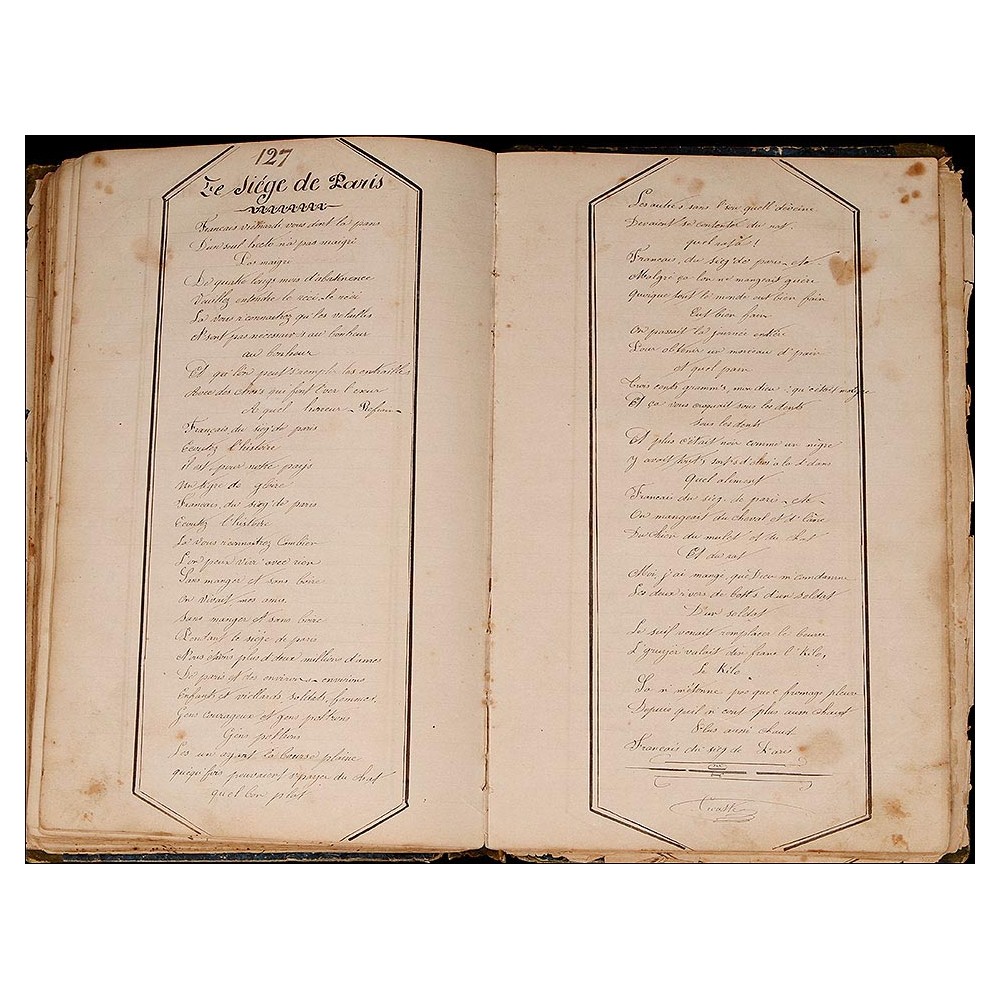 127
Le Siége de Paris
Français vous dont la pans
D'un seul n'a pas maigri
Pas maigri
De quatre longs mois d'abstinence
Veuillez entendre le ceci le récit
La vous r'connaitrez qu'les volailles
N'sont pas necessair's au bonheur
au bonheur
Et qu'l'on peut s'remplir les entrailles
Avec des chos's qui font l'ver l'cœur
A quel horreur - Refrain -
Français du sieg' de paris
Ecoutez l'histoire
il est pour notre pays
Un tigre de gloire
Français du sieg' de paris
Ecoutez l'histoire
La vous r'connaitrez combien
L'on peux viv' avec rien
Sans manger et sans boire
on vivait mes amis
Sans manger et sans boire
Pendant le siége de paris
Nous étions plus d'deux millions d'ames
De paris et des environs - environs
Enfants et viellards, soldats, femmes,
Gens courageux et gens poltrons
Gens poltrons
Les un ayant la bourse pleine
quéqu'fois pouvaient s'payer du chat
quel bon plat
Les autres sans l'sou quell' déveine
Devaient se contenter du rat,
quel rata !
Français du sieg' de paris - etc -
Malgré ça l'on ne mangeait guère
Quoique tout le monde eut bien faim
Eut bien faim
On passait la journée entière
Pour obtenir un morceau d'pain
et quel pain
Trois cents gramm's mon dieu ! qu'c'était maigre
Et ça vous croquait sous les dents
Sous les dents
Et plus c'était noir comme un nègre
Y avait tout's sort's d'chos' à la d'dans
Quel aliment
Français du sieg. de paris - etc -
On mangeait du cheval et d'l'âne
Du chien du mulet et du chat
Et du rat
Moi, j'ai mangé que Dieu m'condamne
Les deux d'un soldat
D'un soldat
Le suif venait remplacer le beurre
L'gruyèr valait dix franc l'Kilo,
Le Kilo
Ça n'm'étonne pas que c'fromage pleure
Depuis qu'il n'cont' plus aussi chaut
Plus aussi chaut
Français du sieg de Paris